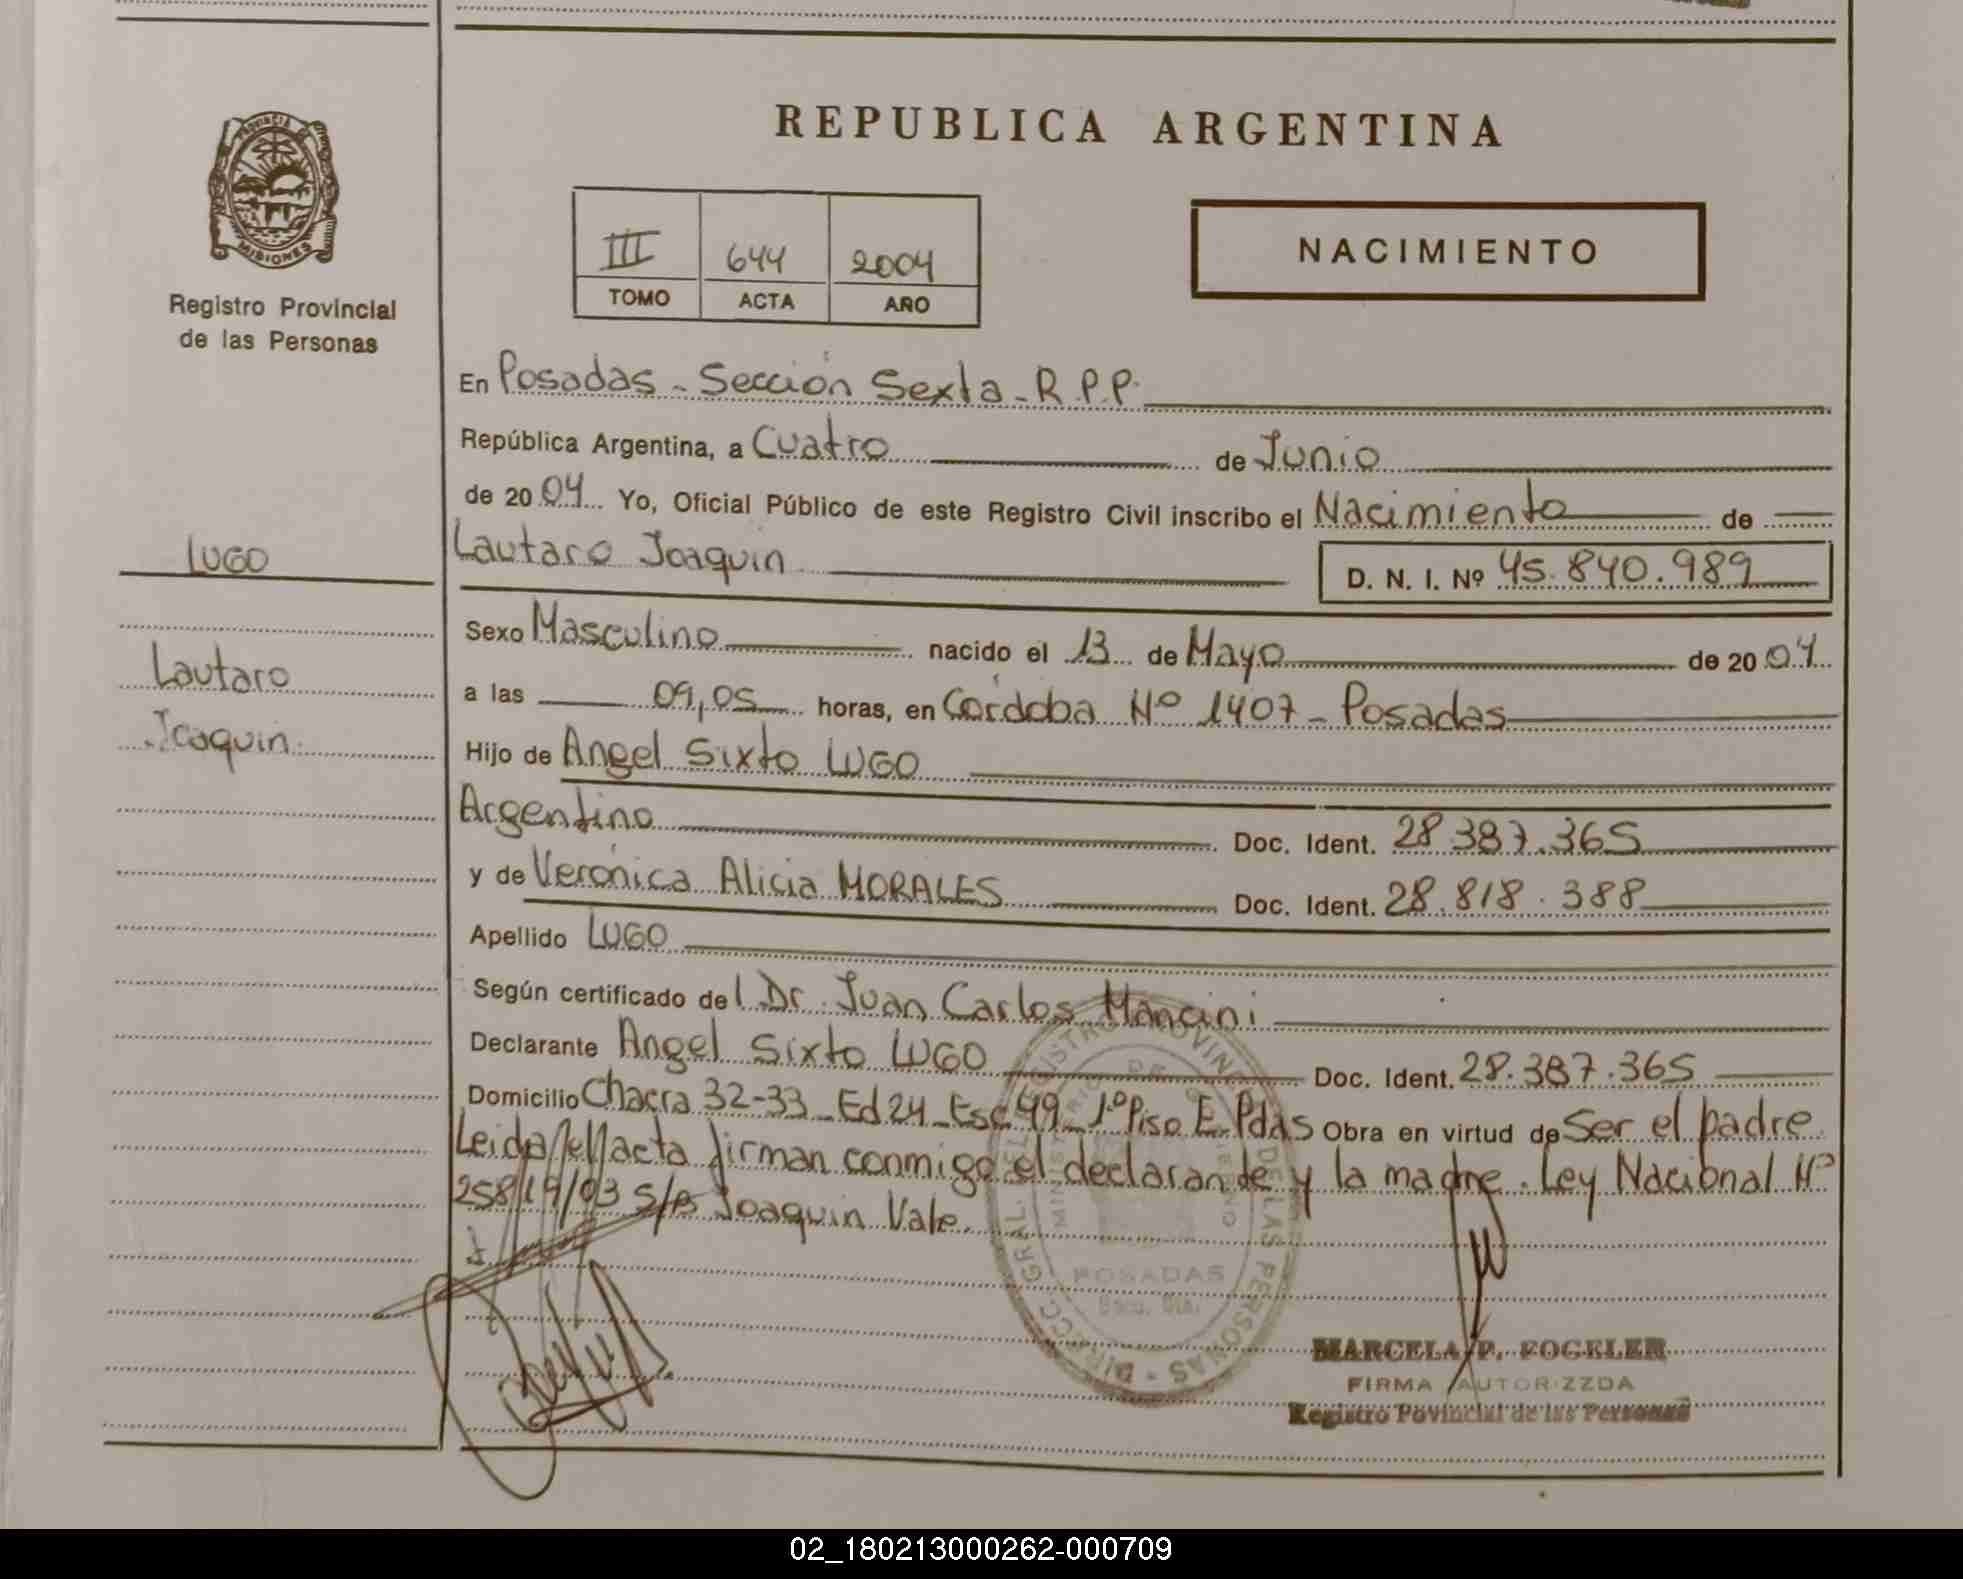 REPUBLICA ARGENTINA
PROVINCIA DE
MISIONES
Registro Provincial
de las Personas
III 644 2004
TOMO ACTA AÑO
NACIMIENTO
LUGO
Lautaro
Joaquin
En Posadas - Sección Sexta - R.P.P.
República Argentina, a Cuatro de Junio
de 20 04 Yo, Oficial Público de este Registro Civil inscribo el Nacimiento de
Lautaro Joaquin D. N. I. Nº 45.840.989
Sexo Masculino nacido el 13 de Mayo de 20 04
a las 09,05 horas, en Córdoba Nº 1407 - Posadas
Hijo de Angel Sixto LUGO
Argentino Doc. Ident. 28.387.365
y de Verónica Alicia MORALES Doc. Ident. 28.818.388
Apellido LUGO
Según certificado del Dr. Juan Carlos Mancini
Declarante Angel Sixto LUGO Doc. Ident. 28.387.365
Domicilio Chacra 32-33 - Ed 24 - Esc 49 - 1º Piso E. Pdas Obra en virtud de Ser el padre
Leida el acta firman conmigo el declarande y la madre. Ley Nacional Nº
25819/03 S/B Joaquin Vale.
POSADAS
MARCELA P. FOGELER
FIRMA AUTORIZZDA
Registro Povincial de las Personas
02_180213000262-000709